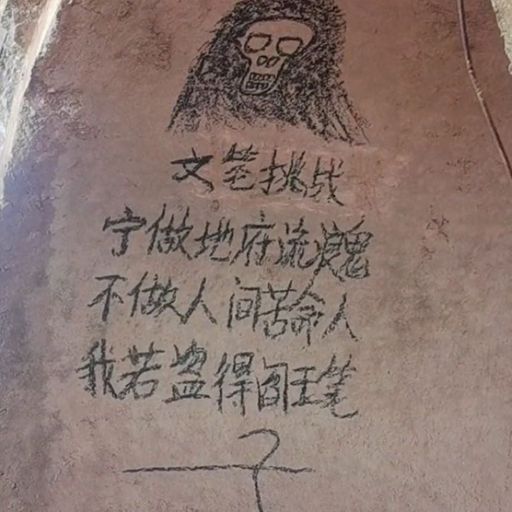 文笔挑战
宁做地府流浪鬼
不做人间苦命人
我若盗得阎王笔